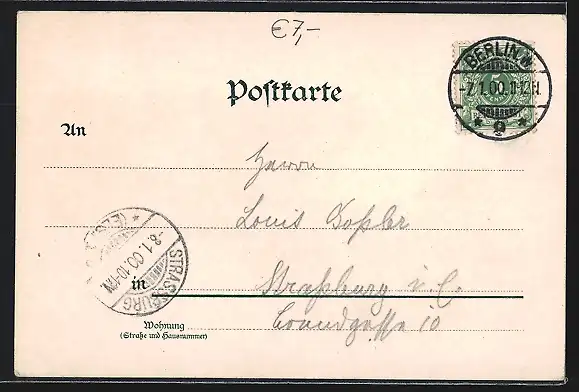 €7,-
BERLIN.W
5
-7.1.00.11-12N.
* 9 *
Postkarte
An
Herrn
Louis
Straßburg i. E.
STRASSBURG
-8.1.00.10-11V
in
10
Wohnung
(Straße und Hausnummer)